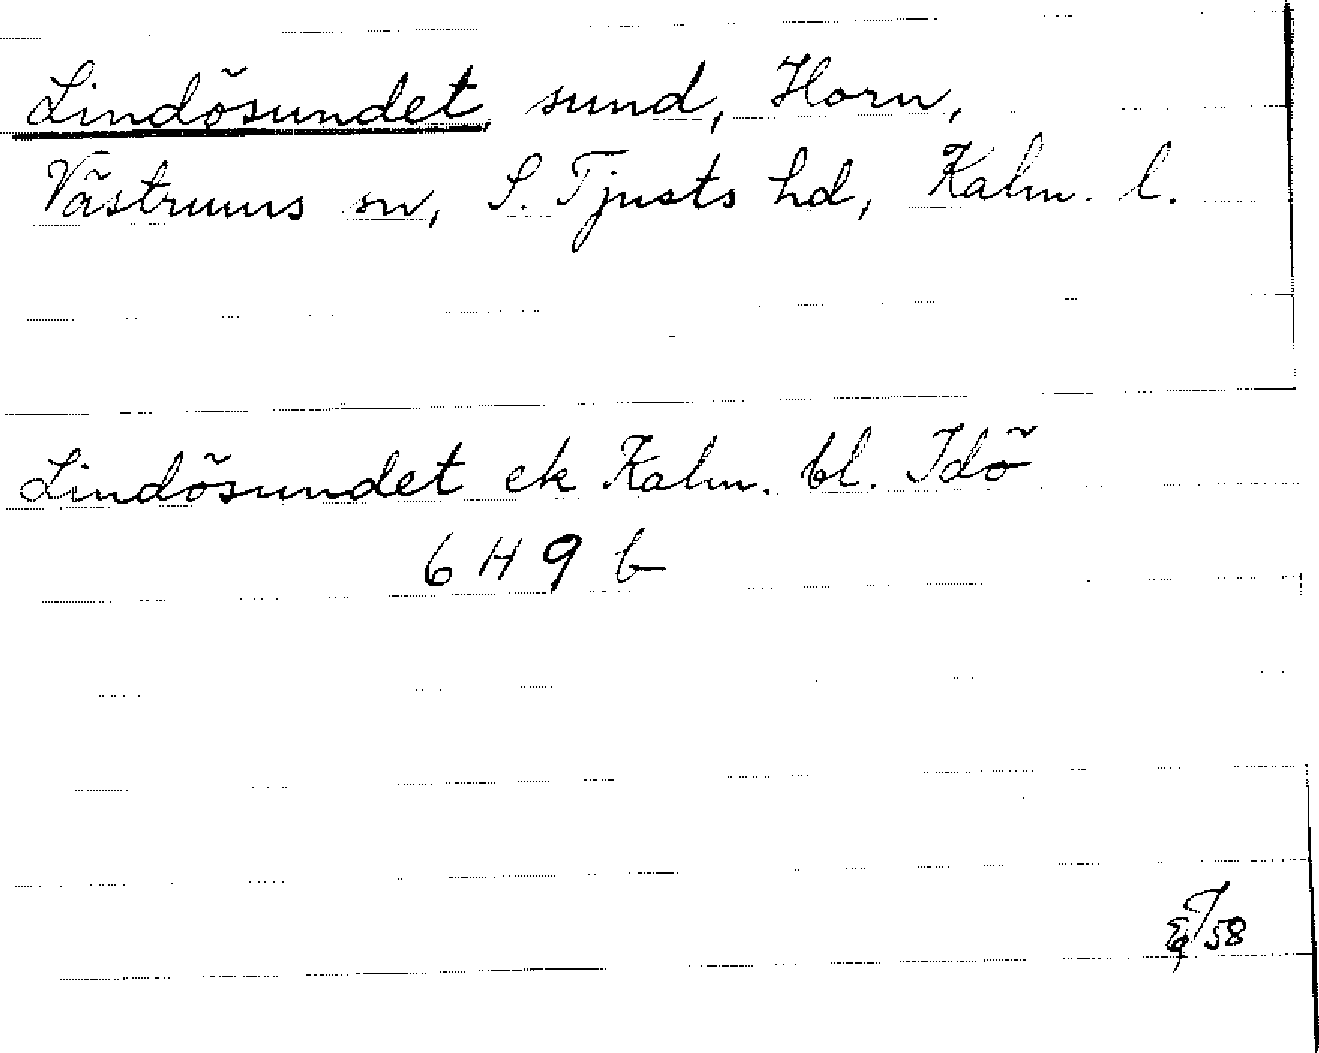 Lindösundet, sund, Horn,
Västrums sn, S. Tjusts hd, Kalm. l.
Lindösundet ek Kalm. bl. Idö
6 H 9 b
58